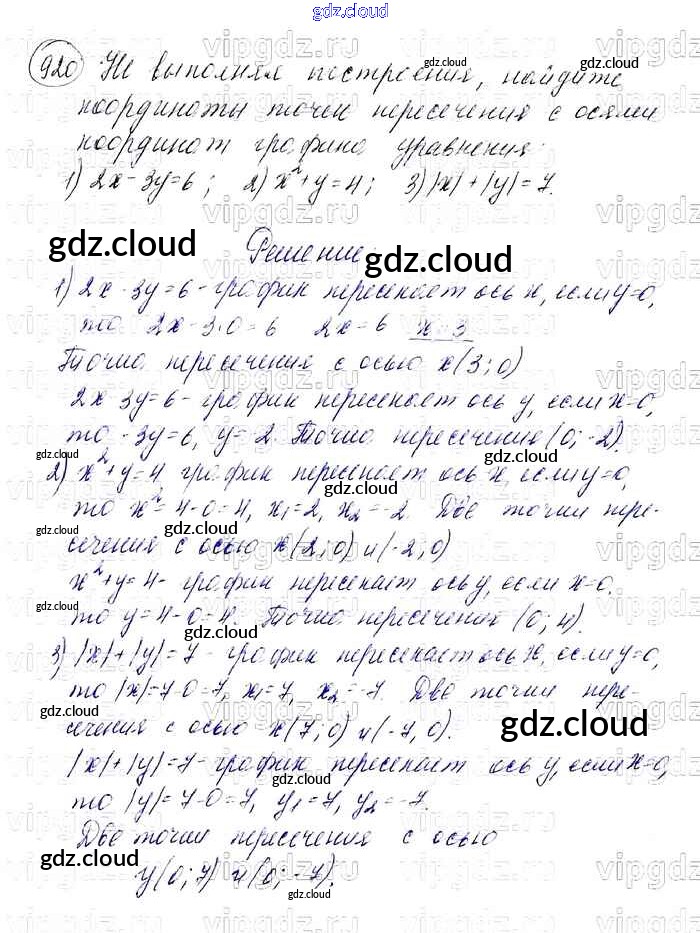 gdz.cloud
920 Не выполняя построения, найдите
координаты точек пересечения с осями
координат графика уравнения:
1) 2x - 3y = 6; 2) x² + y = 4; 3) |x| + |y| = 7.
Решение:
1) 2x - 3y = 6 - график пересекает ось x, если y = 0,
то 2x - 3·0 = 6 2x = 6 x = 3
Точка пересечения с осью x (3; 0)
2x - 3y = 6 - график пересекает ось y, если x = 0,
то -3y = 6, y = -2. Точка пересечения (0; -2).
2) x² + y = 4 график пересекает ось x, если y = 0,
то x² = 4 - 0 = 4, x₁ = 2, x₂ = -2. Две точки пере-
сечения с осью x (2; 0) и (-2; 0)
x² + y = 4 - график пересекает ось y, если x = 0.
то y = 4 - 0 = 4. Точка пересечения (0; 4).
3) |x| + |y| = 7 - график пересекает ось x, если y = 0,
то |x| = 7 - 0 = 7, x₁ = 7, x₂ = -7. Две точки пере-
сечения с осью x (7; 0) и (-7, 0).
|x| + |y| = 7 - график пересекает ось y, если x = 0,
то |y| = 7 - 0 = 7, y₁ = 7, y₂ = -7.
Две точки пересечения с осью
y (0; 7) и (0; -7).